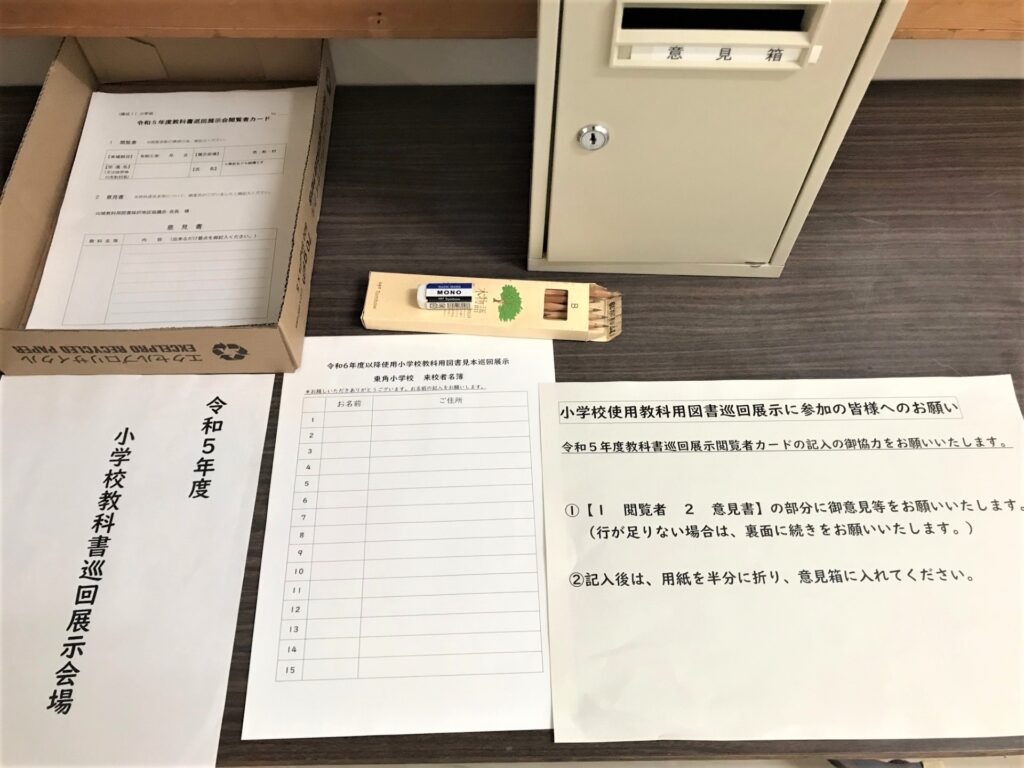 意見箱
令和5年度教科書巡回展示会閲覧者カード
1 閲覧者
2 意見書
意見書
教科名等
内容
エクセルプロリサイクル
EXCELPRO RECYCLED PAPER
MONO
Tombow
木物語
B
令和5年度
小学校教科書巡回展示会場
令和6年度以降使用小学校教科用図書見本巡回展示
東角小学校 来校者名簿
※お越しいただきありがとうございます。お名前の記入をお願いします。
お名前 ご住所
1
2
3
4
5
6
7
8
9
10
11
12
13
14
15
小学校使用教科用図書巡回展示に参加の皆様へのお願い
令和5年度教科書巡回展示閲覧者カードの記入の御協力をお願いいたします。
①【1 閲覧者 2 意見書】の部分に御意見等をお願いいたします。
(行が足りない場合は、裏面に続きをお願いいたします。)
②記入後は、用紙を半分に折り、意見箱に入れてください。